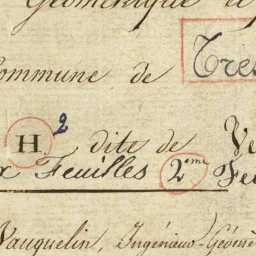 Géométrique
Commune de Tres
H 2 dite de Ve
x Feuilles 2eme Fe
Vauquelin, Ingénieur-Géomè